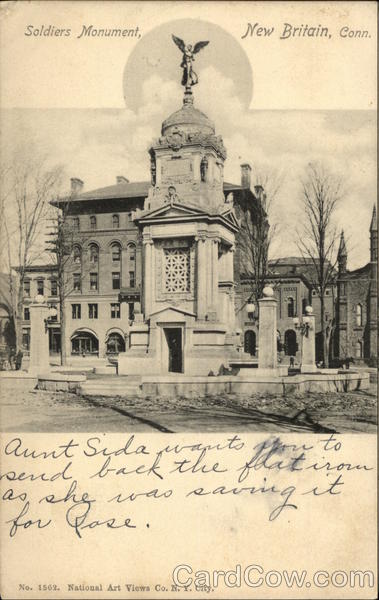 Soldiers Monument, New Britain, Conn.
Aunt Sida wants you to
send back the flat irom
as she was saving it
for Rose.
No. 1562. National Art Views Co. N. Y. City.
CardCow.com